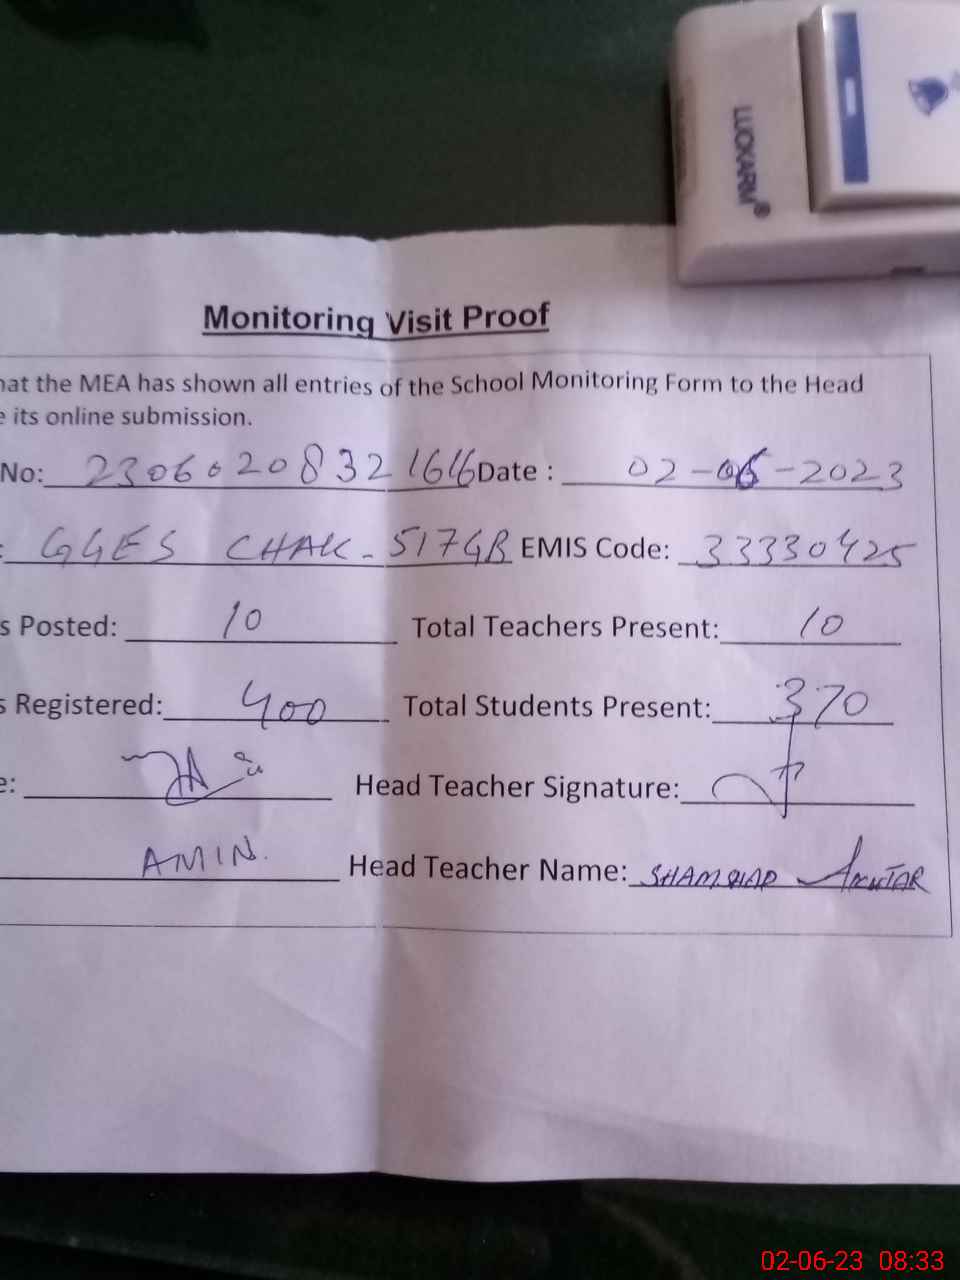 LUCKARM®
Monitoring Visit Proof
hat the MEA has shown all entries of the School Monitoring Form to the Head
e its online submission.
No: 23060208321616 Date : 02-06-2023
: GGES CHAK-517GB EMIS Code: 33330425
s Posted: 10 Total Teachers Present: 10
s Registered: 400 Total Students Present: 370
e: Head Teacher Signature:
AMIN. Head Teacher Name: SHAMSHAD AKHTAR
02-06-23 08:33